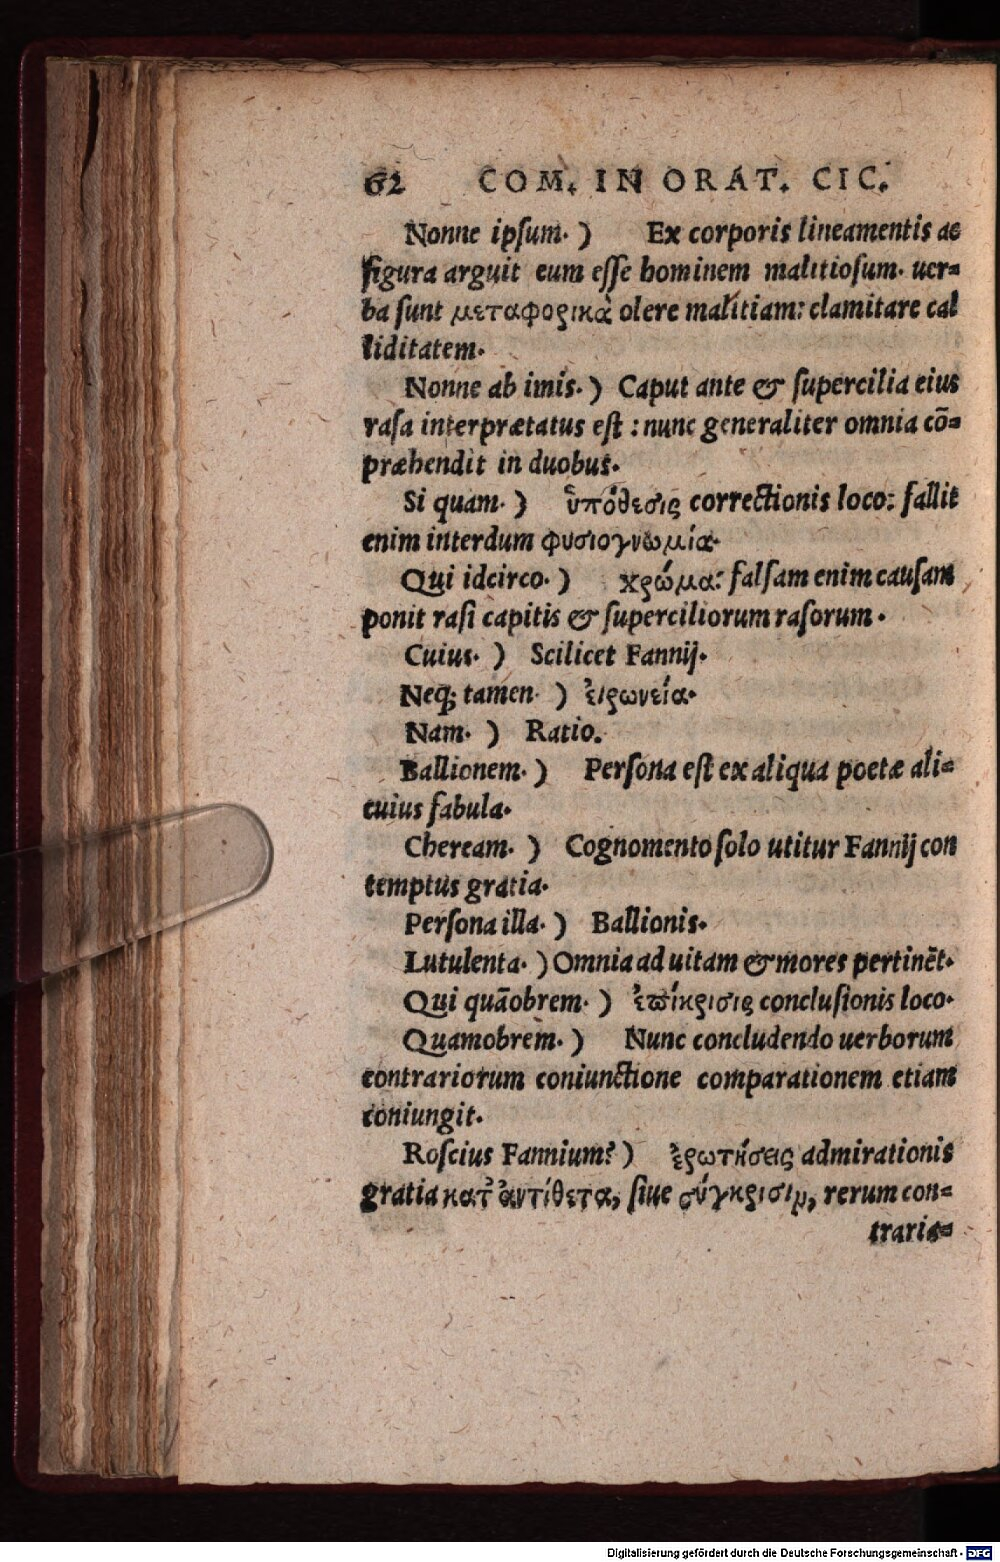 62 COM. IN ORAT. CIC.
Nonne ipſum. ) Ex corporis lineamentis ac
figura arguit eum eſſe hominem malitioſum. uer=
ba ſunt μεταφορικὰ olere malitiam: clamitare cal
liditatem.
Nonne ab imis. ) Caput ante & ſupercilia eius
raſa interprætatus eſt : nunc generaliter omnia cō=
præhendit in duobus.
Si quam. ) ὑπόθεσις correctionis loco: fallit
enim interdum φυσιογνωμία.
Qui idcirco. ) χρῶμα: falſam enim cauſam
ponit raſi capitis & ſuperciliorum raſorum .
Cuius. ) Scilicet Fannij.
Neq; tamen. ) ἐιρωνεία.
Nam. ) Ratio.
Ballionem. ) Perſona eſt ex aliqua poetæ ali=
cuius fabula.
Cheream. ) Cognomento ſolo utitur Fannij con
temptus gratia.
Perſona illa. ) Ballionis.
Lutulenta. ) Omnia ad uitam & mores pertinēt.
Qui quāobrem. ) ἐπίκρισις concluſionis loco.
Quamobrem. ) Nunc concludendo uerborum
contrariorum coniunctione comparationem etiam
coniungit.
Roſcius Fannium? ) ἐρωτήσεις admirationis
gratia κατ᾽ ἀντίθετα, ſiue σύγκρισιν, rerum con=
traria=
Digitalisierung gefördert durch die Deutsche Forschungsgemeinschaft - DFG